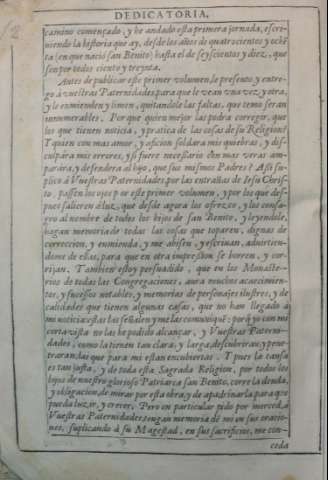 DEDICATORIA.
camino començado, y he andado esta primera jornada, escri-
uiendo la historia que ay, desde los años de quatrocientos y ochē
ta (en que nacio san Benito) hasta el de seyscientos y diez,, que
son por todos ciento y treynta.
Antes de publicar este primer volumen, le presento, y entre-
go à vuestras Paternidades para que le vean vna vez, y otra,
y le enmienden y limen, quitandole las faltas, que temo seran
innumerables. Por que quien mejor las podra corregir, que
los que tienen noticia, y pratica de las cosas de su Religion?
Y quien con mas amor, y aficion soldara mis quiebras, y dis-
culpàra mis errores, y si fuere necessario con mas veras am-
parara, y defendera al hijo, que sus mismos Padres? Assi su-
plico à Vuestras Paternidades por las entrañas de Iesu Chris-
to, passen los ojos por este primer volumen, y por los que des-
pues salieren à luz, que desde agora los ofrezco, y los consa-
gro al nombre de todos los hijos de san Benito, y leyendole,
hagan memoria de todas las cosas que toparen, dignas de
correccion, y enmienda, y me auisen, y escriuan, aduirtien-
dome de ellas, para que en otra impression se borren, y cor-
rijan. Tambien estoy persuadido, que en los Monaste-
rios de todas las Congregaciones, aura muchos acaecimien-
tos, y sucessos notables, y memorias de personajes ilustres, y de
calidades que tienen algunas casas, que no han llegado à
mi noticia: estas las señalen y me las comuniquē: porq̄ yo con mi
corta vista no las he podido alcançar, y Vuestras Paterni-
dades, como la tienen tan clara, y larga, descubriran, y pene-
traran las que para mi estan encubiertas. Y pues la causa
es tan justa, y de toda esta Sagrada Religion, por todos los
hijos de nuestro glorioso Patriarca san Benito, corre la deuda,
y obligacion, de mirar por esta obra, y de apadrinarla para que
pueda luzir, y crecer. Pero en particular pido por merced, à
Vuestras Paternidades, tengan memoria de mi en sus oracio-
nes, suplicando à su Magestad, en sus sacrificios, me con-
ceda